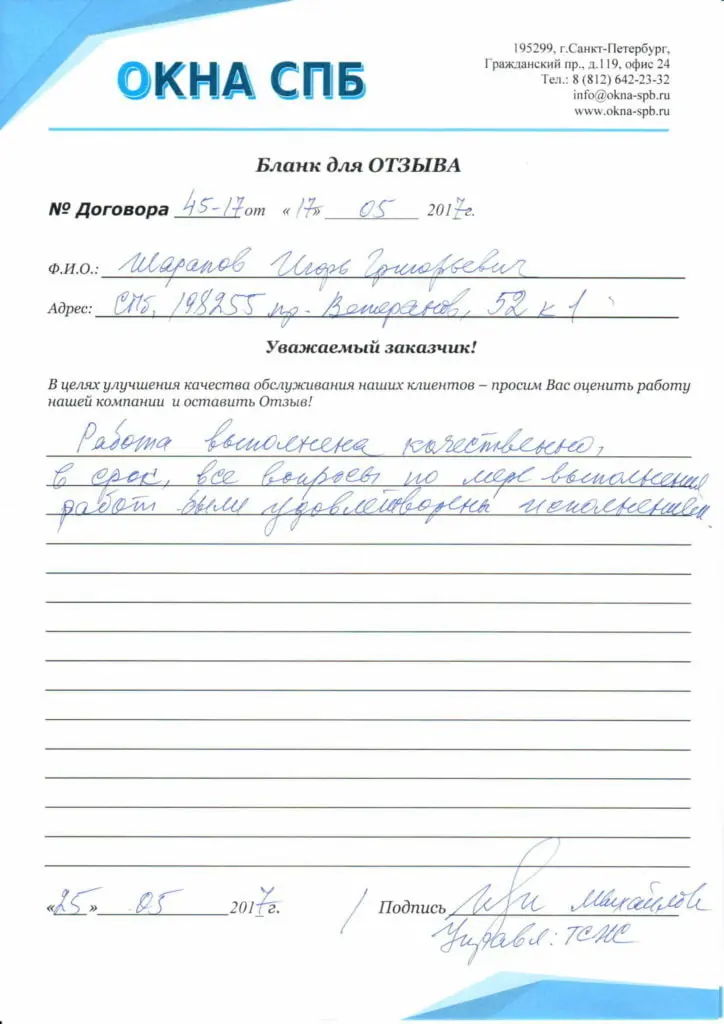 ОКНА СПБ
195299, г.Санкт-Петербург,
Гражданский пр., д.119, офис 24
Тел.: 8 (812) 642-23-32
info@okna-spb.ru
www.okna-spb.ru
Бланк для ОТЗЫВА
№ Договора 45-17 от «17» 05 2017г.
Ф.И.О.: Шарапов Игорь Григорьевич
Адрес: СПб, 198255 пр. Ветеранов, 52 к 1
Уважаемый заказчик!
В целях улучшения качества обслуживания наших клиентов – просим Вас оценить работу
нашей компании и оставить Отзыв!
Работа выполнена качественно,
в срок, все вопросы по мере выполнения
работ были удовлетворены исполнением.
«25» 05 2017г. / Подпись Михайлов
Управл: ТСЖ